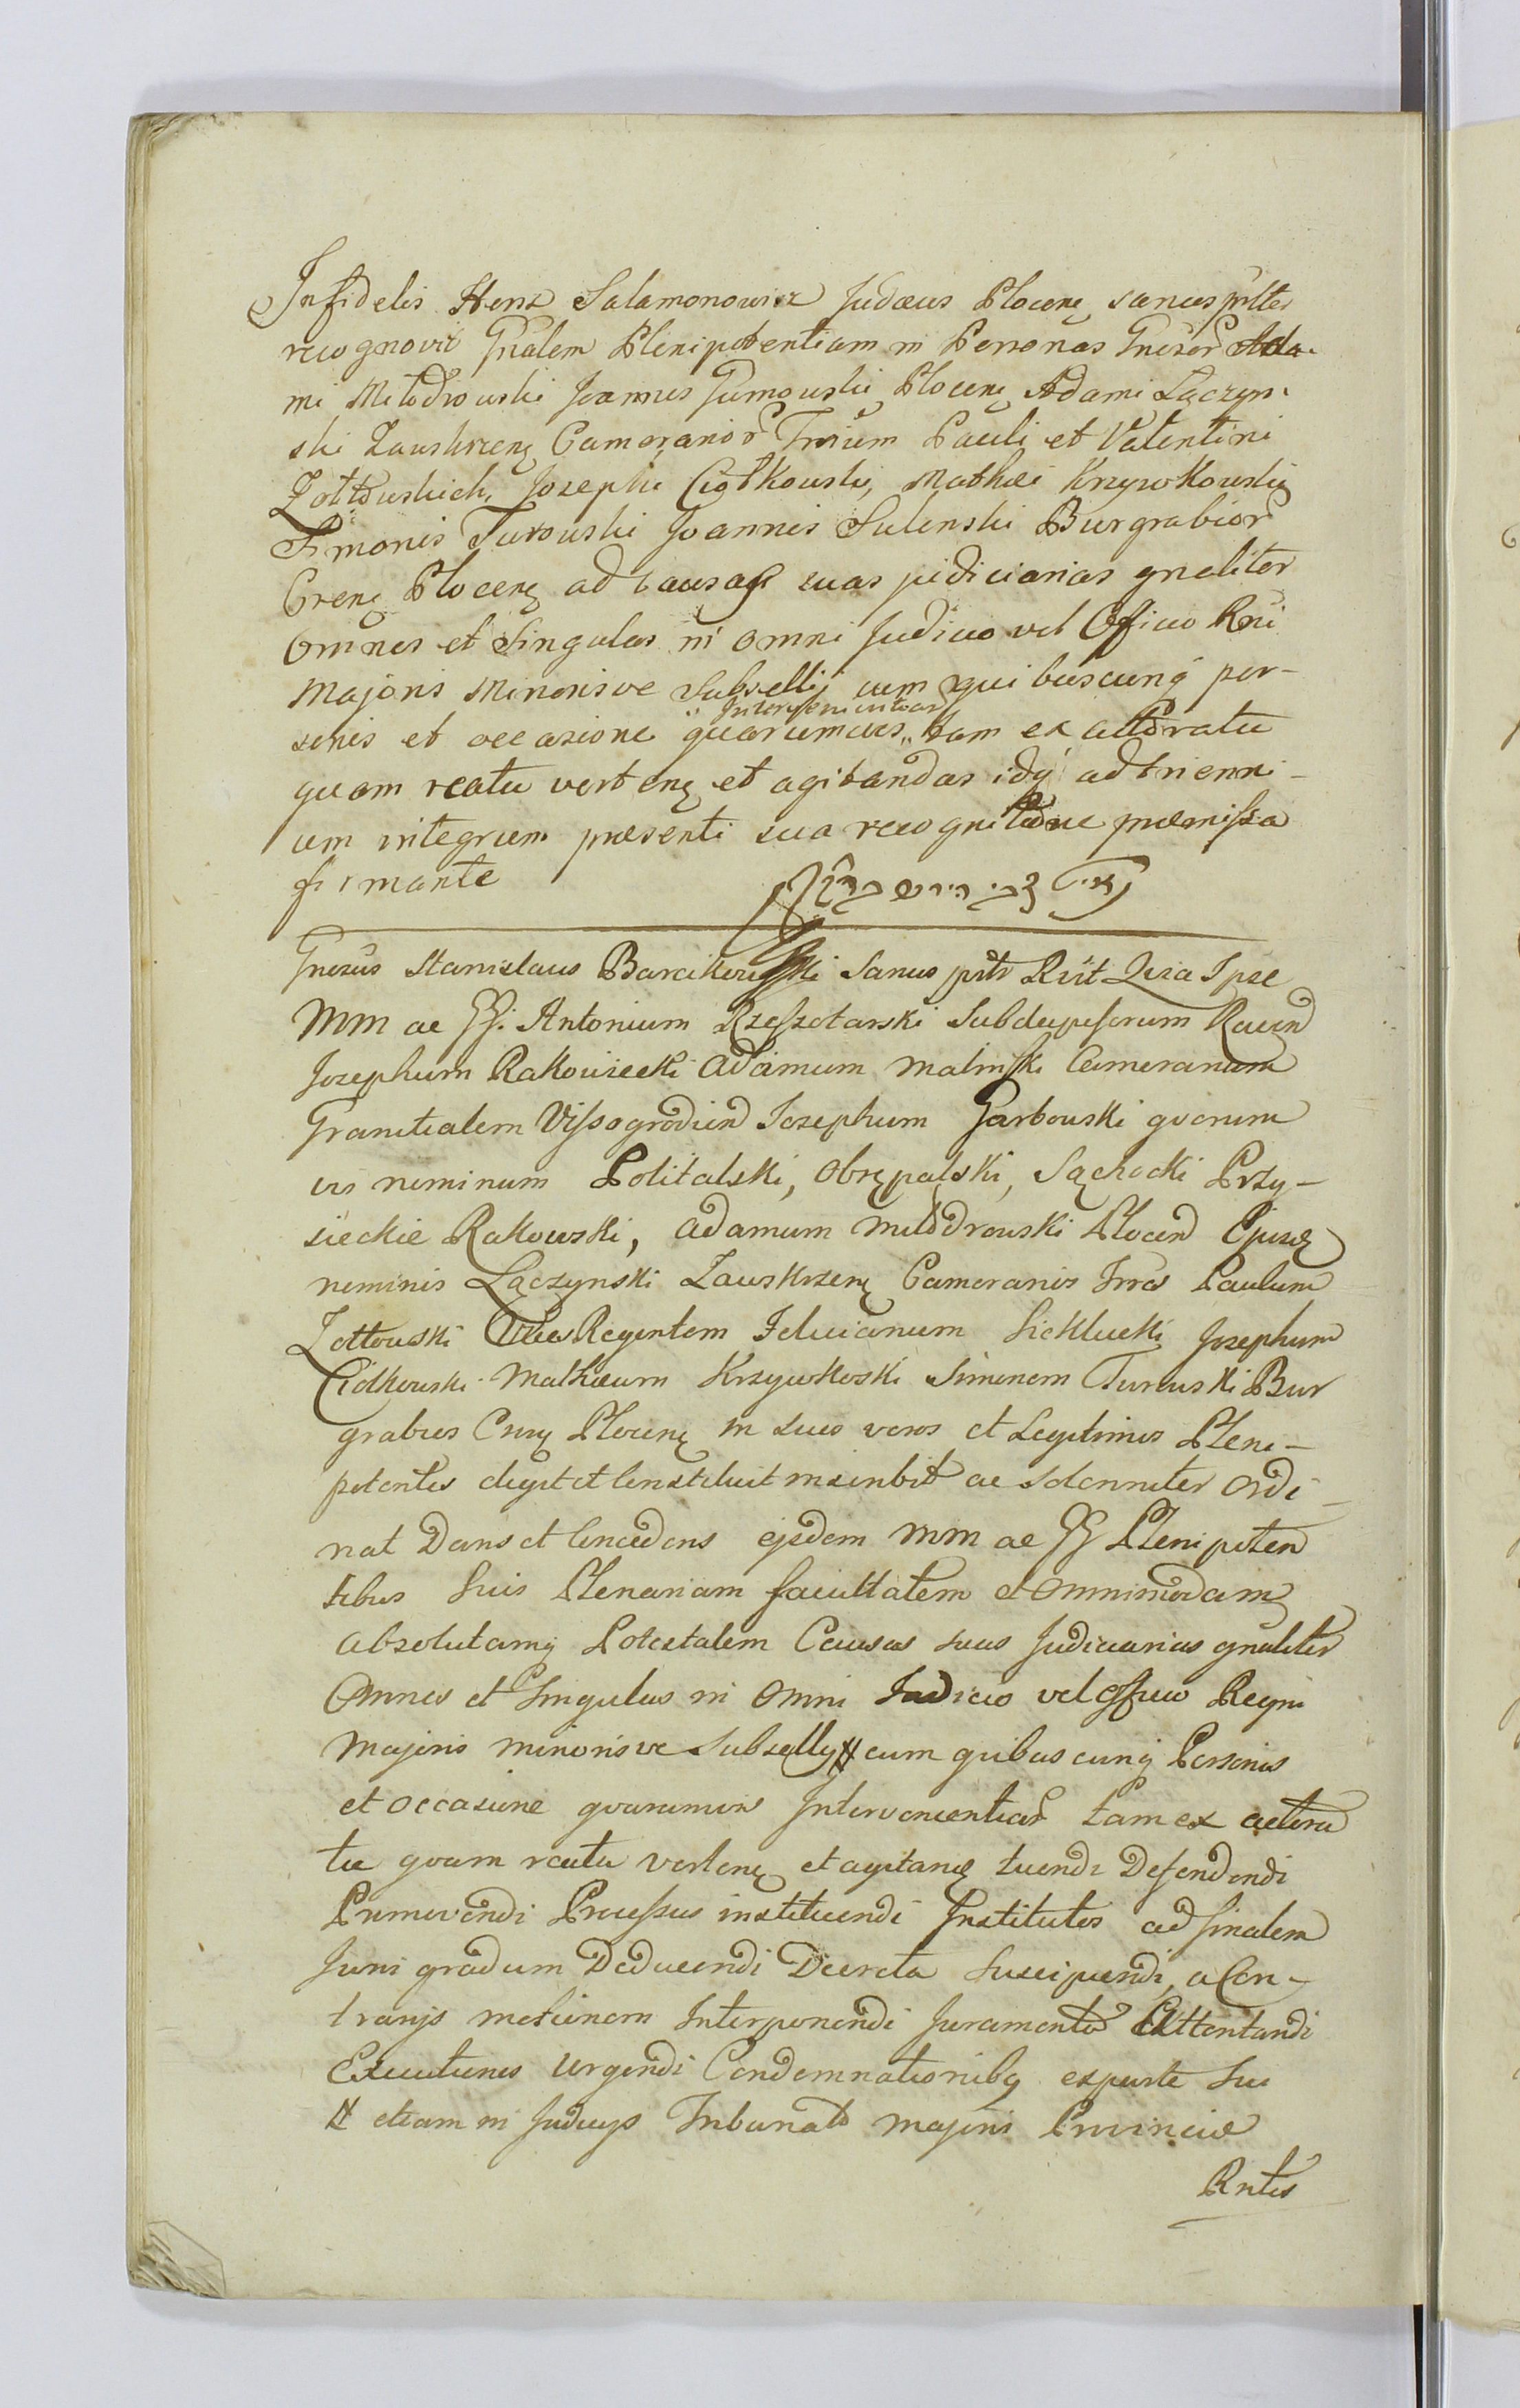 Infidelis Hersz Salamonowicz Judæus Plocenę sanus pntter
recognovit Gnalem Plenipotentiam in Personas Gnesor Ada-
mi Młodrowski Joannis Gumowski Plocenę Adami Lączyn-
ski Zauskrzenę Cameranior Trium Pauli et Valentini
Zołtowskich, Josephi Ciołkowski, Mathæi Krzywkowski
Simonis Turowski Joannis Sulenski Burgrabior
Crenę Plocenę ad causas suas judiciarias gnaliter
omnes et Singulas in omni Judicio vel Officio Rni
Majoris Minorisve Subsellij cum quibuscunq per-
sonis et occasione quarumvis „ tam ex actoratu
„ Intervenientiar
quam reatu vertenę et agitandas idq ad trienni-
um integrum præsenti sua recognitione præmissa
firmante
Gnesus Stanislaus Barcikowski Sanus pntr Rűt Quia Ipse
MM ac GG. Antonium Rzeszotarski Subdapiferum Racen
Josephum Rakowiecki Adamum Malinski Cameranum
Granitialem Vissogrodien Josephum Garbowski quorum
vis nominum Politalski, Obrępalski, Sąchocki Przy-
sieckie Rakowski, Adamum Młodrowski Plocen Ejusdę
nominis Lączynski Zauskrzenę Cameranios Trros Paulum
Zoltowski Vice Regentem Felicianum Sieklucki Josephum
Ciolkowski Mathæum Krzywkoski Simonem Turuski Bur
grabios Crnę Plocenę in suos veros et Legitimos Pleni-
potentes elegit et Constituit inscribit ac solenniter Ordi-
nat Dans et Concedens ejsdem MM ac GG Plenipoten
tibus Suis Plenariam facultatem et omnimodam
absolutamq Potestatem Causas suas Judiciarias gnaliter
Omnes et Singulas in Omni Judicio vel Officio Regni
Majoris minorisve Subselly # cum quibus cunq Personis
et occasione quarumvis Intervenientiar tam ex actora
tu quam reatu vertenę et agitandę tuendi Defendendi
Promovendi Processus instituendi Institutos ad finalem
Juris gradum Deducendi Decreta Suscipiendi, a Con-
trarijs motionem Interponendi Juramenta Attentandi
Executiones Urgendi Condemnationibq exparte Sui
# etiam in Judicys Tribunals Majoris Provinciæ
Rntes